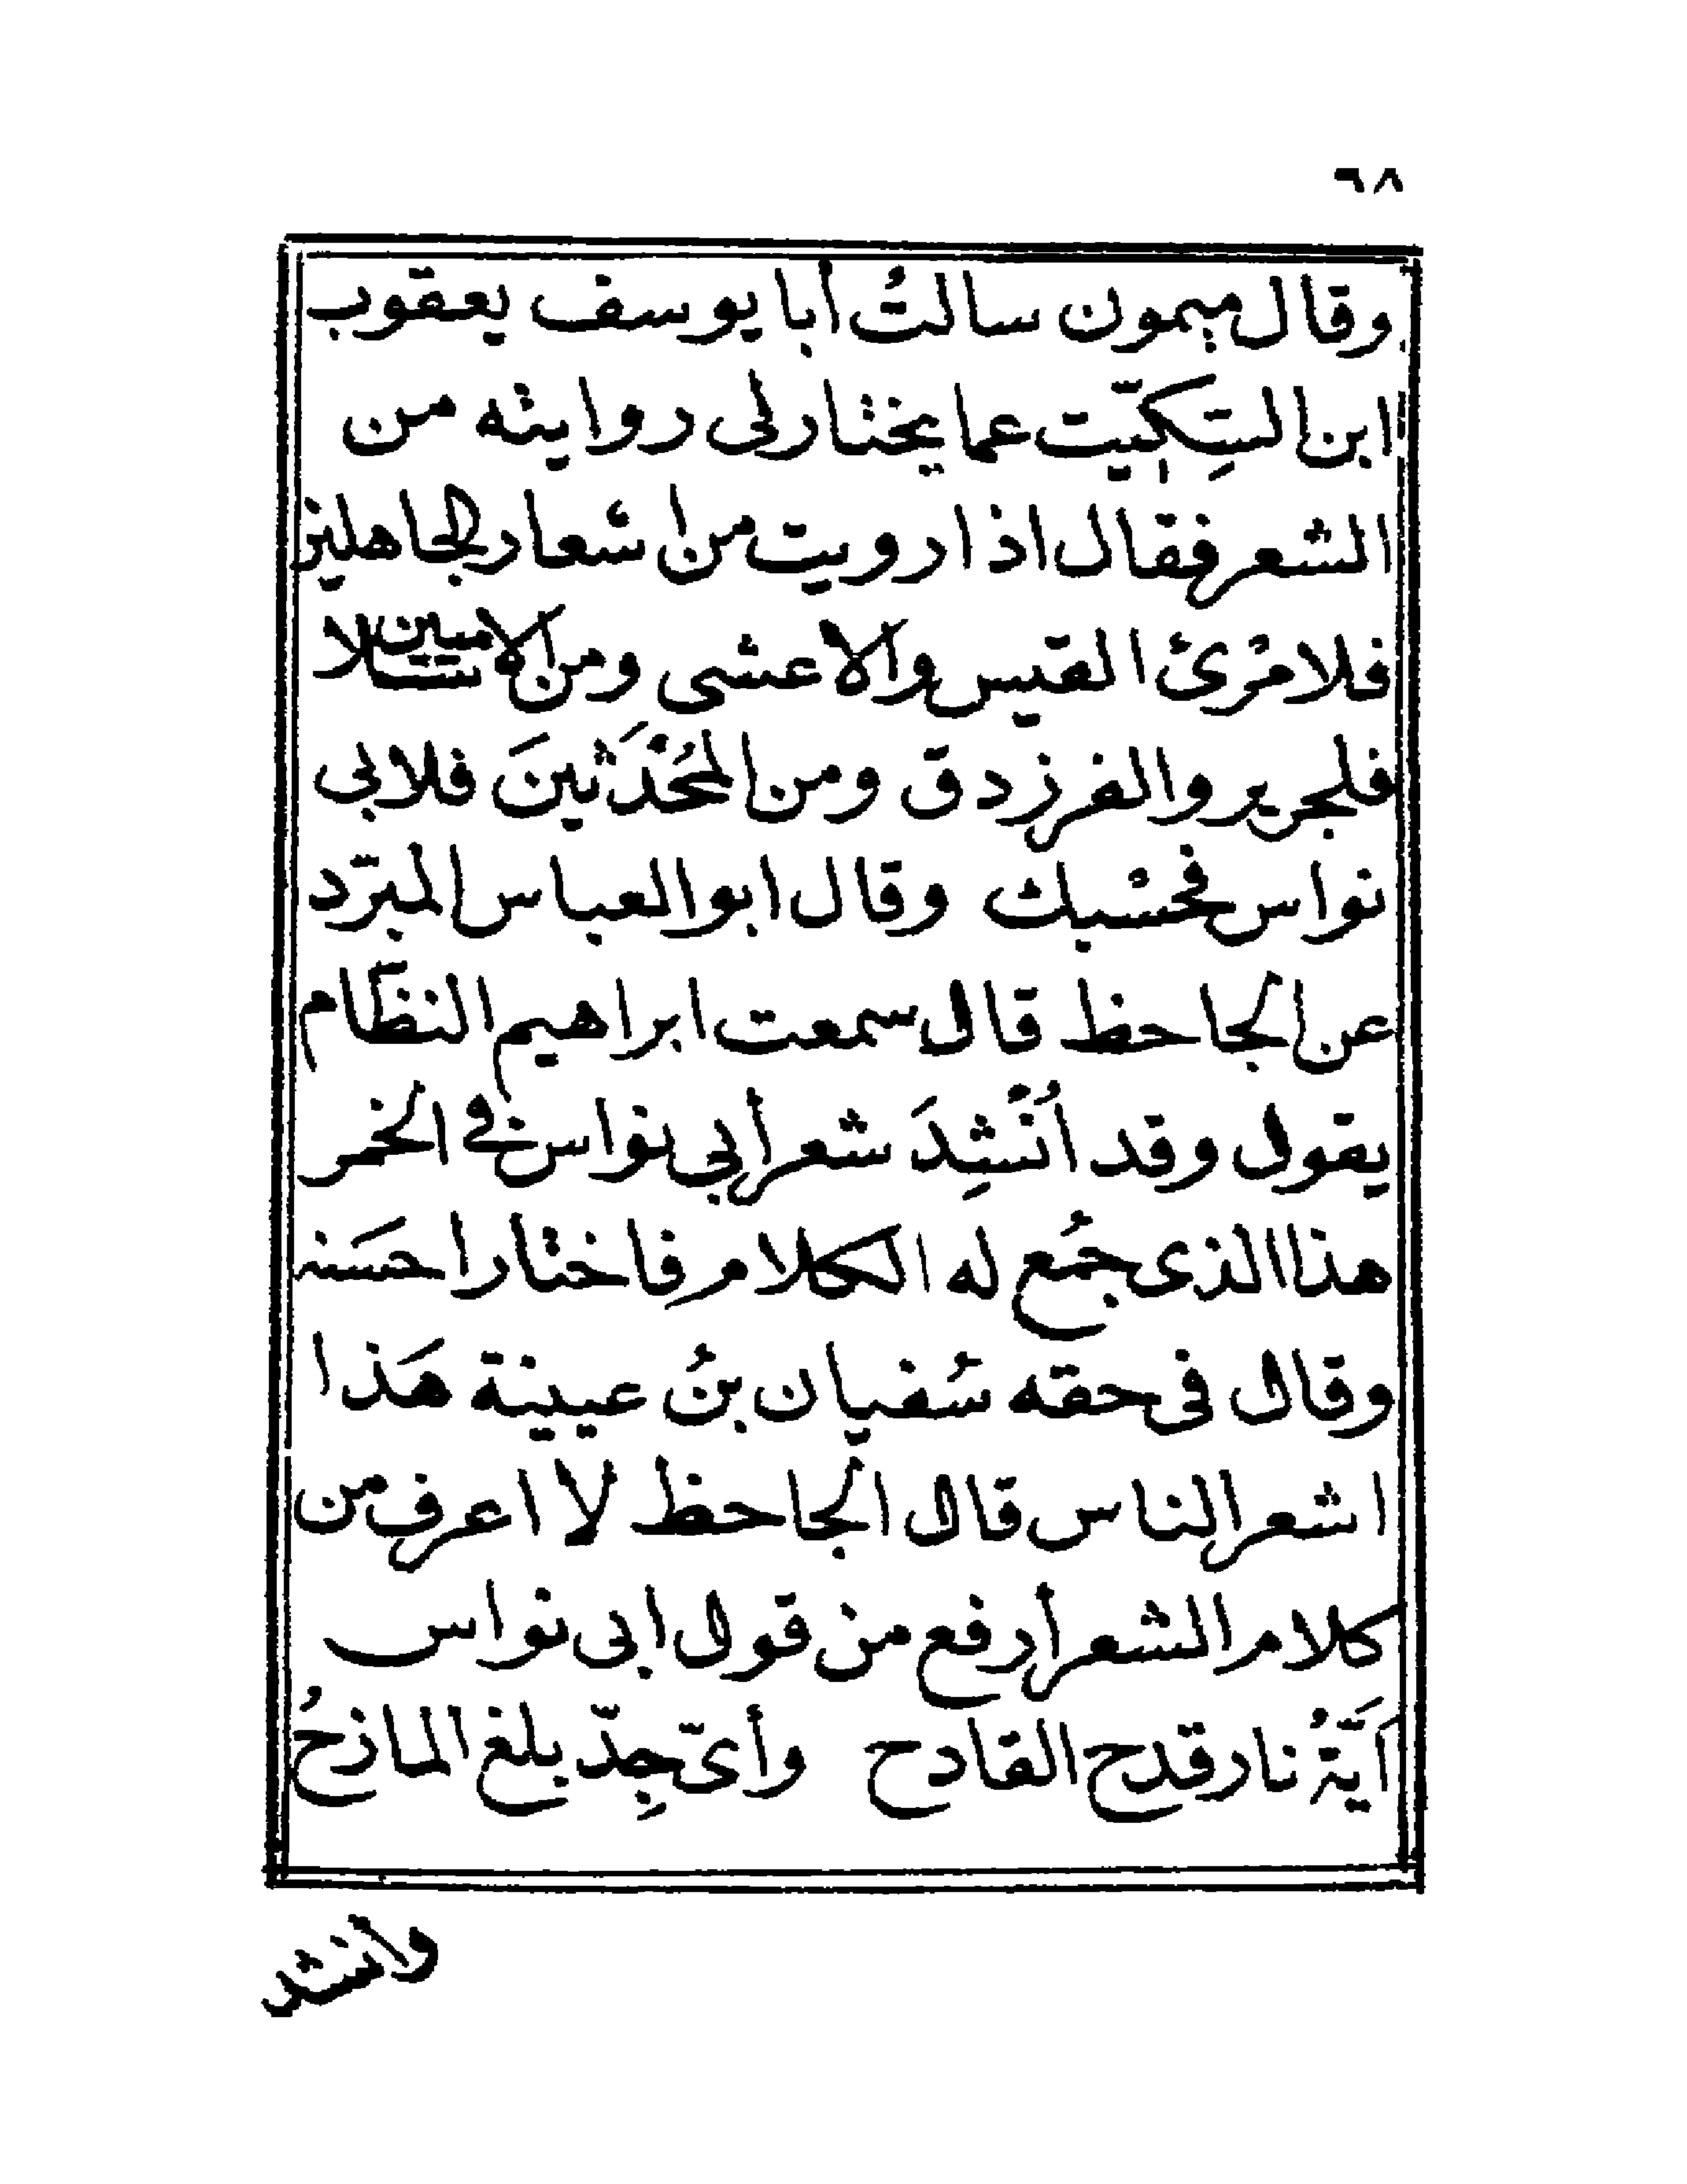 ٦٨
وقال ميمون سالتُ أبا يوسف يعقوب
ابن السِكّيت عما يختار لى روايته من
الشعر فقال اذا رويت من اشعار الجاهلين
فلامرْئ القيس والاعشى ومن الاسلاميين
فلجرير والفرزدق ومن المُحْدَثينَ فلابى
نواس فحسْبك وقال ابو العباس المبرّد
عن الجاحظ قال سمعت ابراهيم النظّام
يقول وقد اُنْشِدَ شعر أبي نواس في الخمر
هذا الذى جُمع له الكلام فاختار احسَنه
وقال فى حقه سُفيان بنُ عيينة هَذا
اشعر الناس قال الجاحظ لا اعرف من
كلام الشعر أرفع من قول ابى نواس
أَيّةُ نار قدح القادح وأىّ جِدّ بلغ المازحُ
وانشد